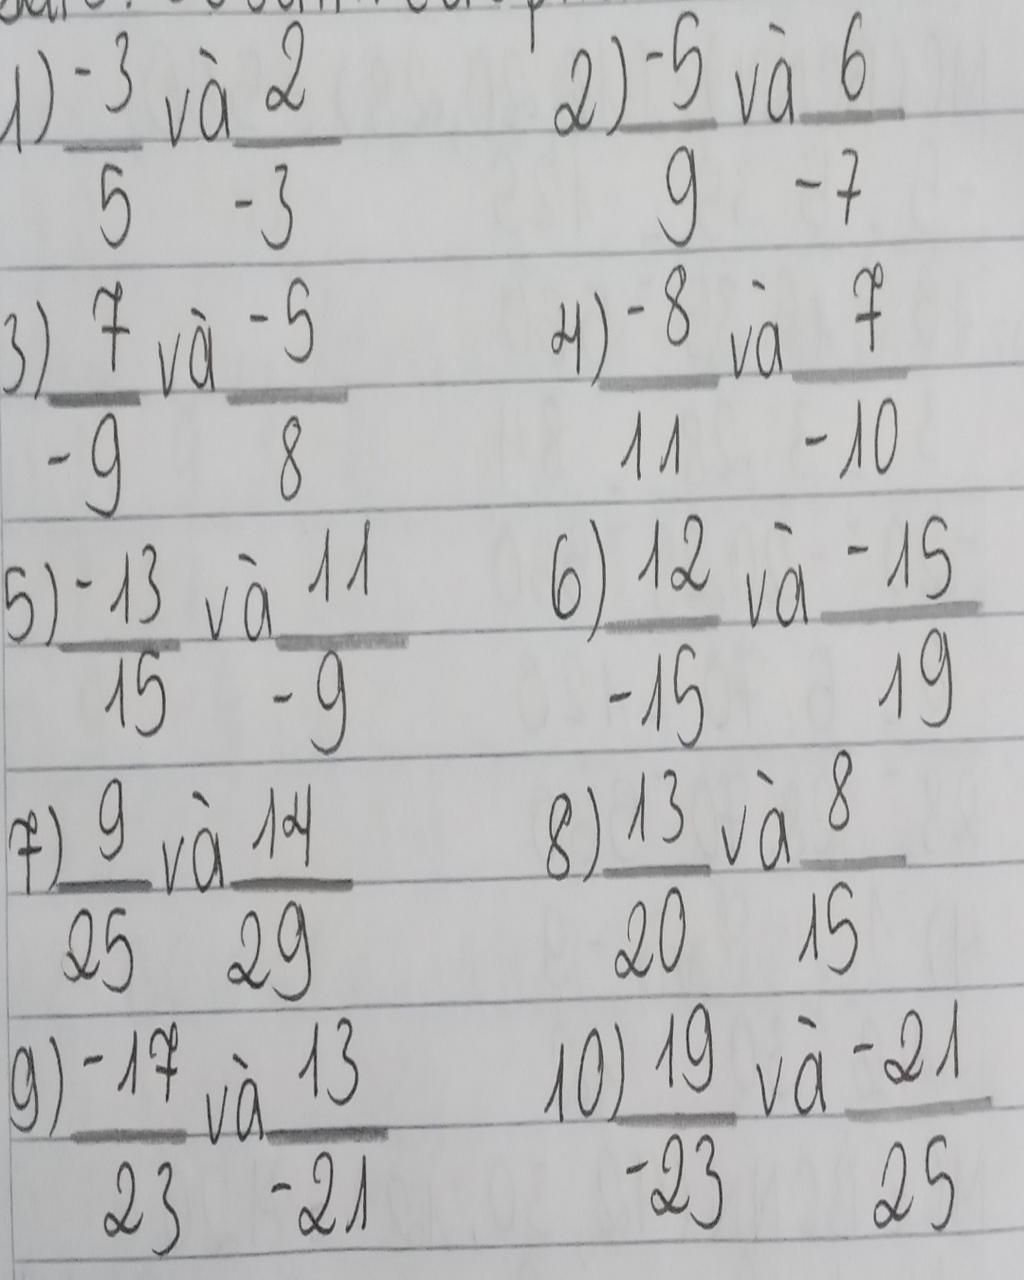 1) -3/5 và 2/-3 2) -5/9 và 6/-7
3) 7/-9 và -5/8 4) -8/11 và 7/-10
5) -13/15 và 11/-9 6) 12/-15 và -15/19
7) 9/25 và 14/29 8) 13/20 và 8/15
9) -17/23 và 13/-21 10) 19/-23 và -21/25